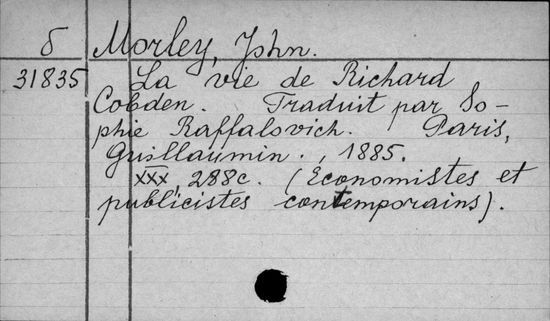 б Morley, John.
31835 La vie de Richard
Cobden. Traduit par So-
phie Raffalovich. Paris,
Guillaumin., 1885.
XXX, 288c. (Economistes et
publicistes contemporains).